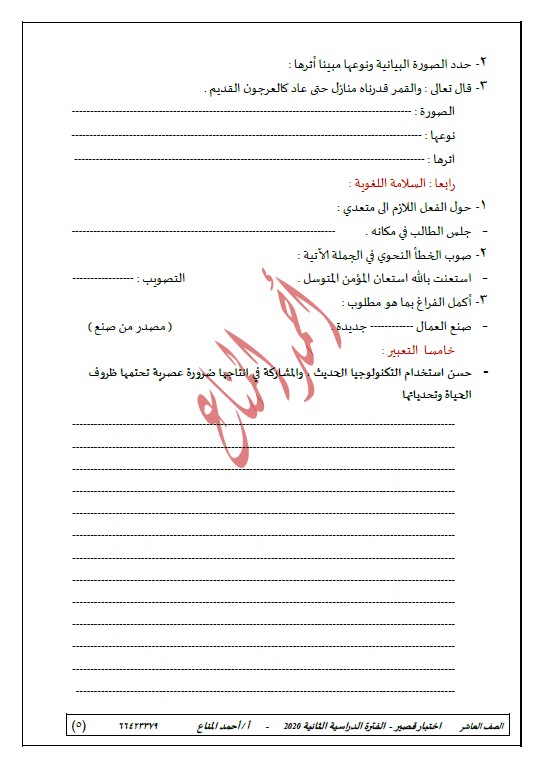 ٢- حدد الصورة البيانية ونوعها مبينا أثرها :
٣- قال تعالى : والقمر قدرناه منازل حتى عاد كالعرجون القديم .
الصورة : --------------------
نوعها : --------------------
اثرها : --------------------
رابعا : السلامة اللغوية :
١- حول الفعل اللازم الى متعدي :
- جلس الطالب في مكانه . --------------------
٢- صوب الخطأ النحوي في الجملة الآتية :
- استعنت بالله استعان المؤمن المتوسل . التصويب : -----------------
٣- أكمل الفراغ بما هو مطلوب :
- صنع العمال ------------ جديدة . ( مصدر من صنع )
خامسا التعبير :
- حسن استخدام التكنولوجيا الحديث ، والمشاركة في انتاجها ضرورة عصرية تحتمها ظروف
الحياة وتحدياتها
أحمد المناع
الصف العاشر اختبار قصير - الفترة الدراسية الثانية 2020 - أ / أحمد المناع ٦٦٤٢٣٣٧٩ (٥)